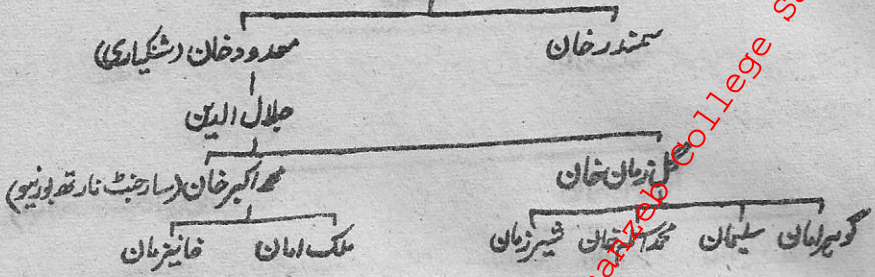 سمندرخان محدودخان (شنکیاری)
جلال الدین
گل زمان خان محمد اکبرخان (سارجنٹ نارتھ بورنیو)
گوہرامان سلیمان محمد اسلم خان شیرزمان ملک امان خانیزمان
anzeb College